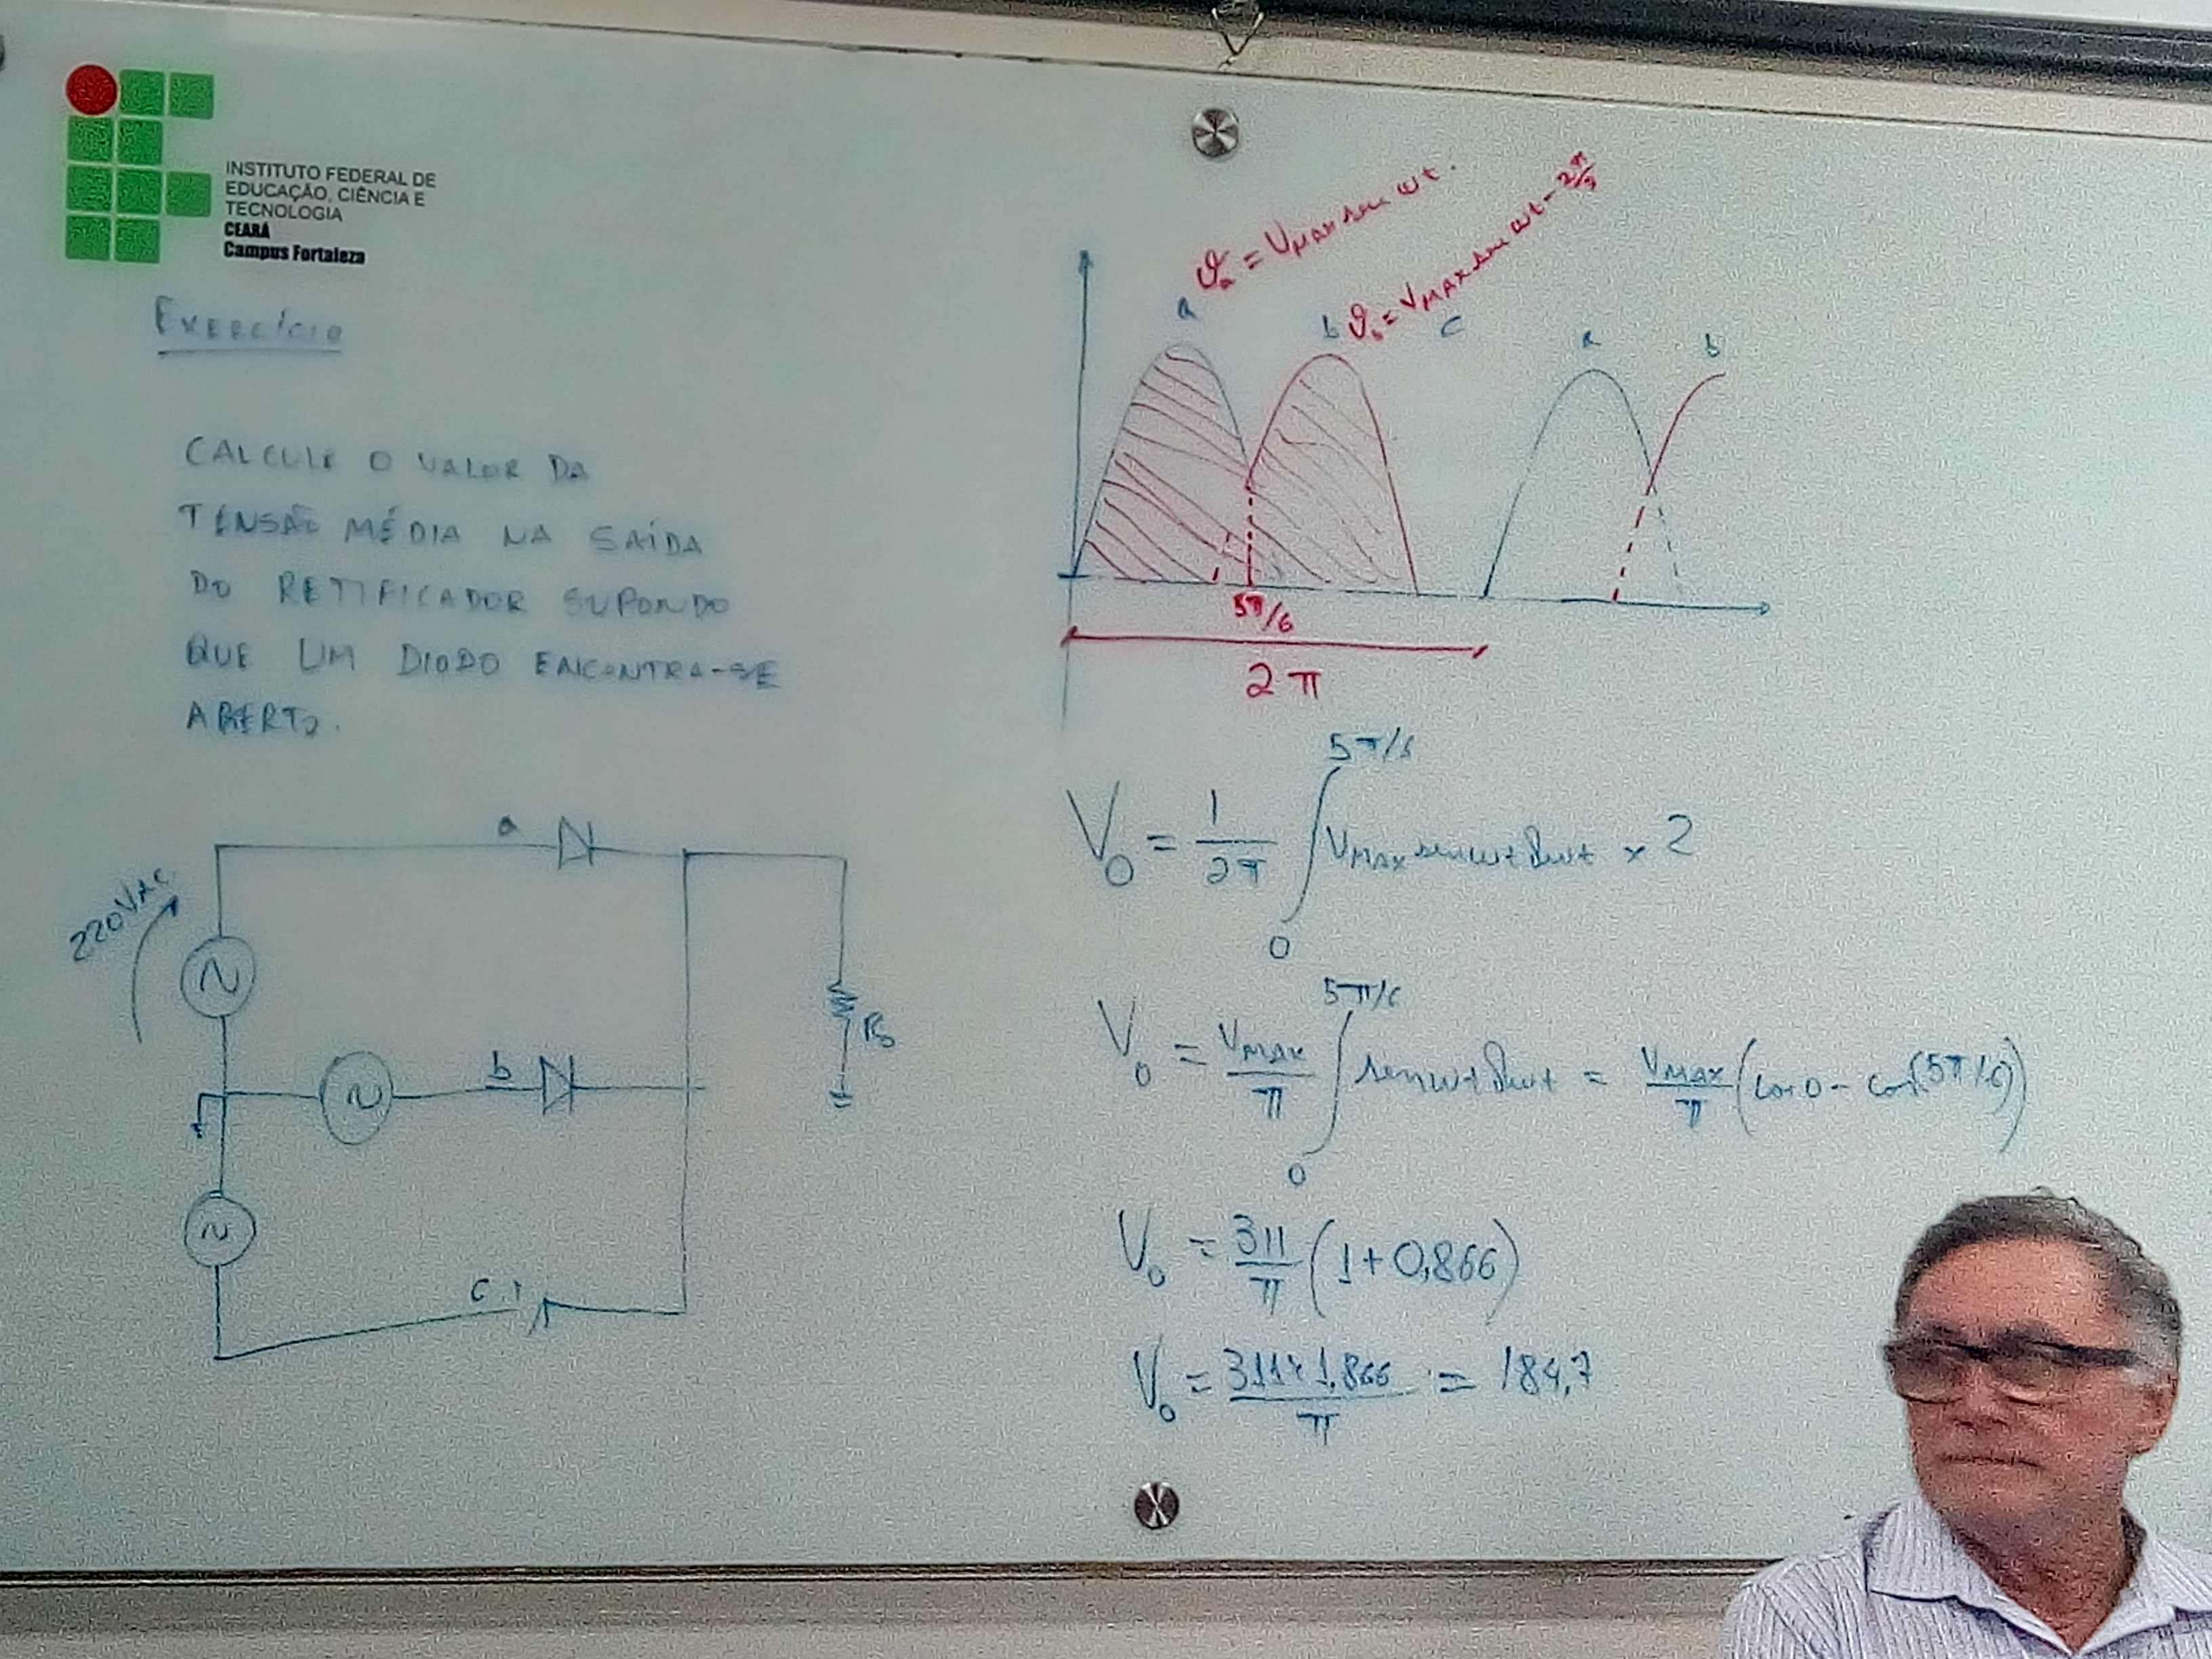 INSTITUTO FEDERAL DE
EDUCAÇÃO, CIÊNCIA E
TECNOLOGIA
CEARÁ
Campus Fortaleza
EXERCÍCIO
CALCULE O VALOR DA
TENSÃO MÉDIA NA SAÍDA
DO RETIFICADOR SUPONDO
QUE UM DIODO ENCONTRA-SE
ABERTO.
220VAC
a
b
c
R₀
ϑa = VMAX sen ωt.
ϑb = VMAX sen ωt - 2π/3
a
b
c
a
b
5π/6
2π
V₀ = 1/2π ∫₀^5π/6 VMAX sen ωt dωt × 2
V₀ = VMAX/π ∫₀^5π/6 sen ωt dωt = VMAX/π (cos 0 - cos(5π/6))
V₀ = 311/π (1+0,866)
V₀ = 311×1,866/π = 184,7